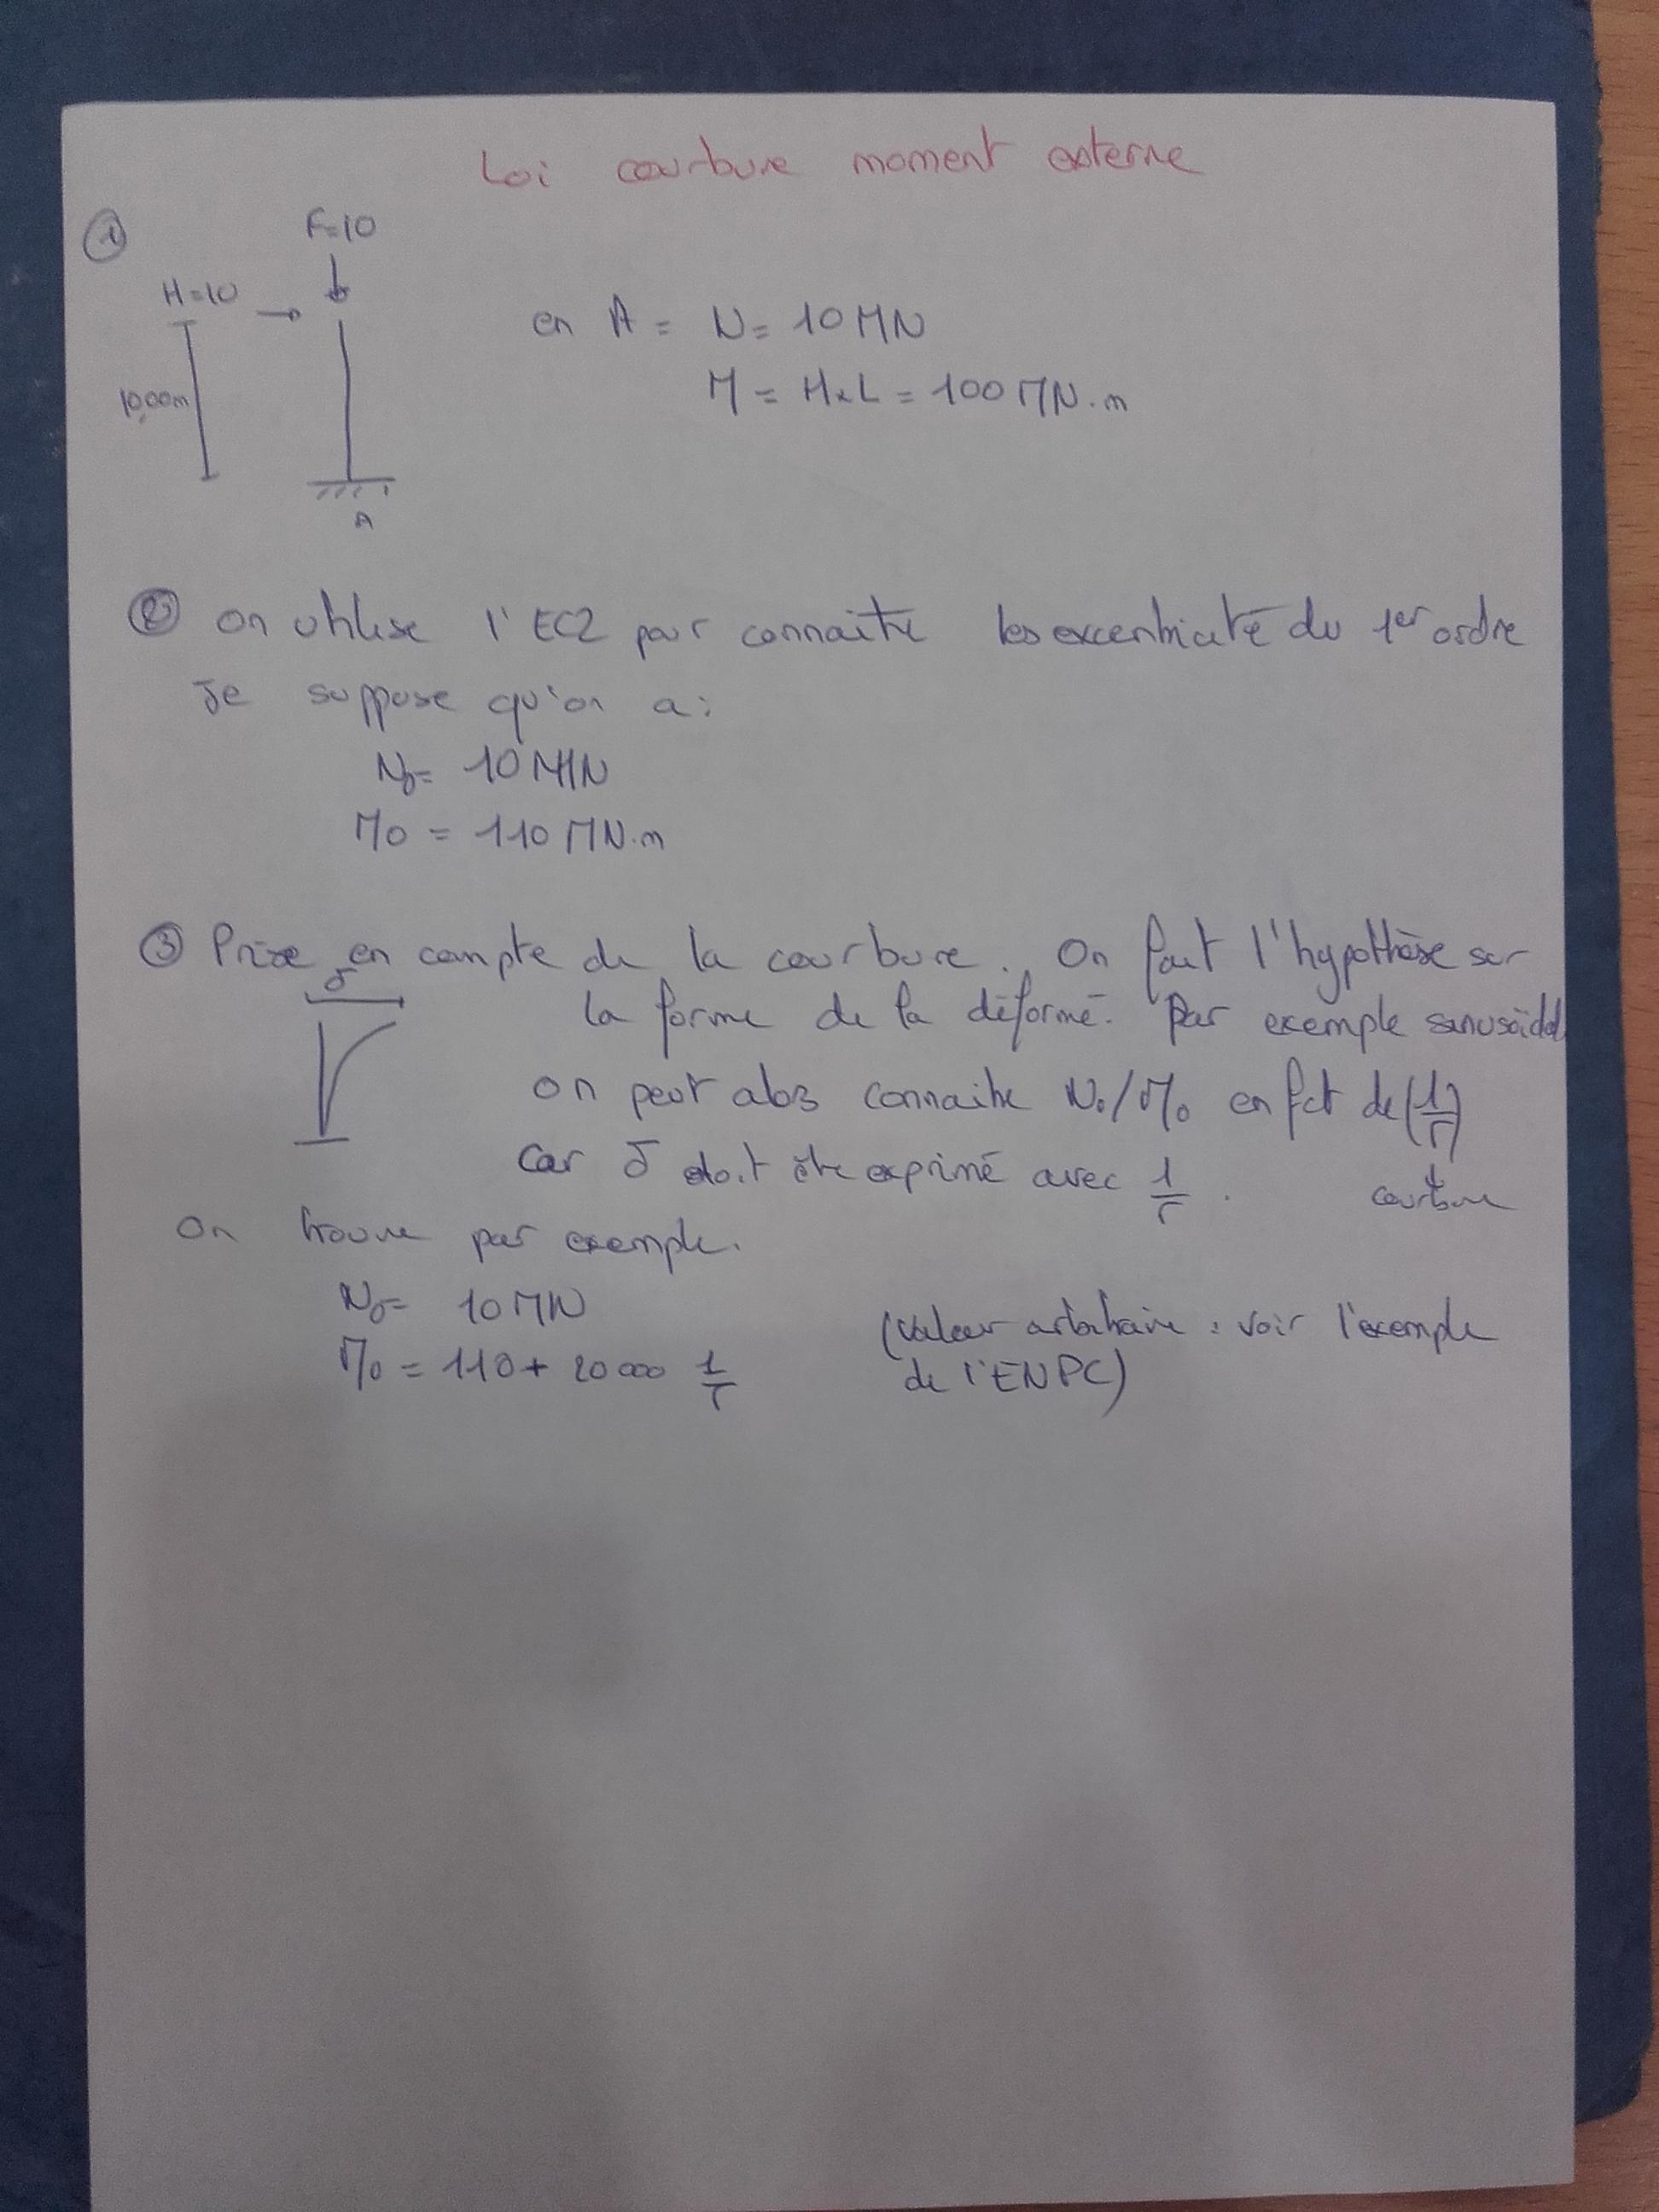 Loi courbure moment externe
①
F=10
H=10
10,00m
A
en A = N = 10 MN
M = H x L = 100 MN.m
② On utilise l'EC2 pour connaitre les excentricité du 1er ordre
Je suppose qu'on a :
N0 = 10 MN
M0 = 110 MN.m
③ Prise en compte de la courbure. On fait l'hypothèse sur
la forme de la déformé. Par exemple sinusoïdal
δ
on peut alors connaitre N0/M0 en fct de (1/r)
car δ doit être exprimé avec 1/r.
courbure
On trouve par exemple.
N0 = 10 MN
M0 = 110 + 20 000 1/r
(Valeur arbitraire : voir l'exemple
de l'ENPC)